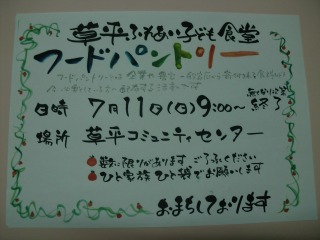 草平ふれあい子ども食堂
フードパントリー
フードパントリーとは 企業や農家
日時 7月11日(日)9:00～ 終了
場所 草平コミュニティセンター
数に限りがあります ご了承ください
ひと家族 ひと袋でお願いします
おまちしております